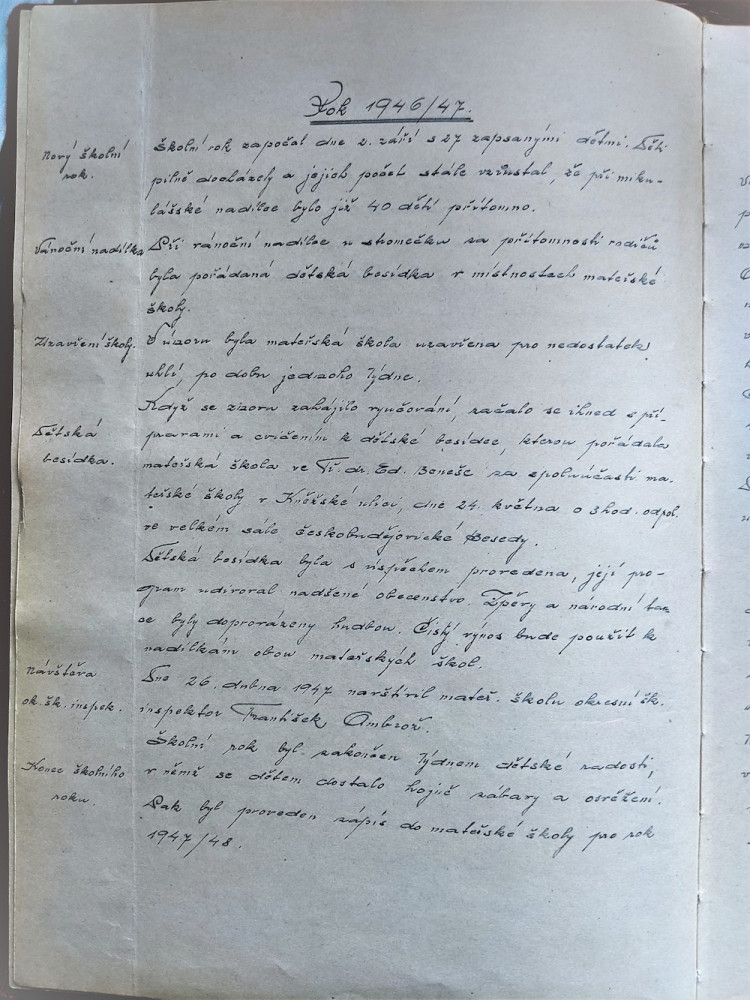 Rok 1946/47.
Nový školní
rok.
Školní rok započal dne 2. září s 27 zapsanými dětmi. Děti
pilně docházely a jejich počet stále vzrůstal, že při miku-
lášské nadílce bylo již 40 dětí přítomno.
Vánoční nadílka
Při vánoční nadílce u stromečku za přítomnosti rodičů
byla pořádaná dětská besídka v místnostech mateřské
školy.
Uzavření školy.
V únoru byla mateřská škola uzavřena pro nedostatek
uhlí po dobu jednoho týdne.
Dětská
besídka.
Když se znovu zahájilo vyučování, začalo se ihned s pří-
pravami a cvičením k dětské besídce, kterou pořádala
mateřská škola ve Tř. dr. Ed. Beneše za spoluúčasti ma-
teřské školy v Kněžské ulici, dne 24. května o 3 hod. odpol.
ve velkém sále českobudějovické Besedy.
Dětská besídka byla s úspěchem provedena, její pro-
gram udivoval nadšené obecenstvo. Zpěvy a národní tan
ce byly doprovázeny hudbou. Čistý výnos bude použit k
nadílkám obou mateřských škol.
Návštěva
ok. šk. inspek.
Dne 26. dubna 1947 navštívil mateř. školu okresní šk.
inspektor František Ambrož.
Konec školního
roku.
Školní rok byl zakončen Týdnem dětské radosti,
v němž se dětem dostalo hojně zábavy a osvěžení.
Pak byl proveden zápis do mateřské školy pro rok
1947/48.